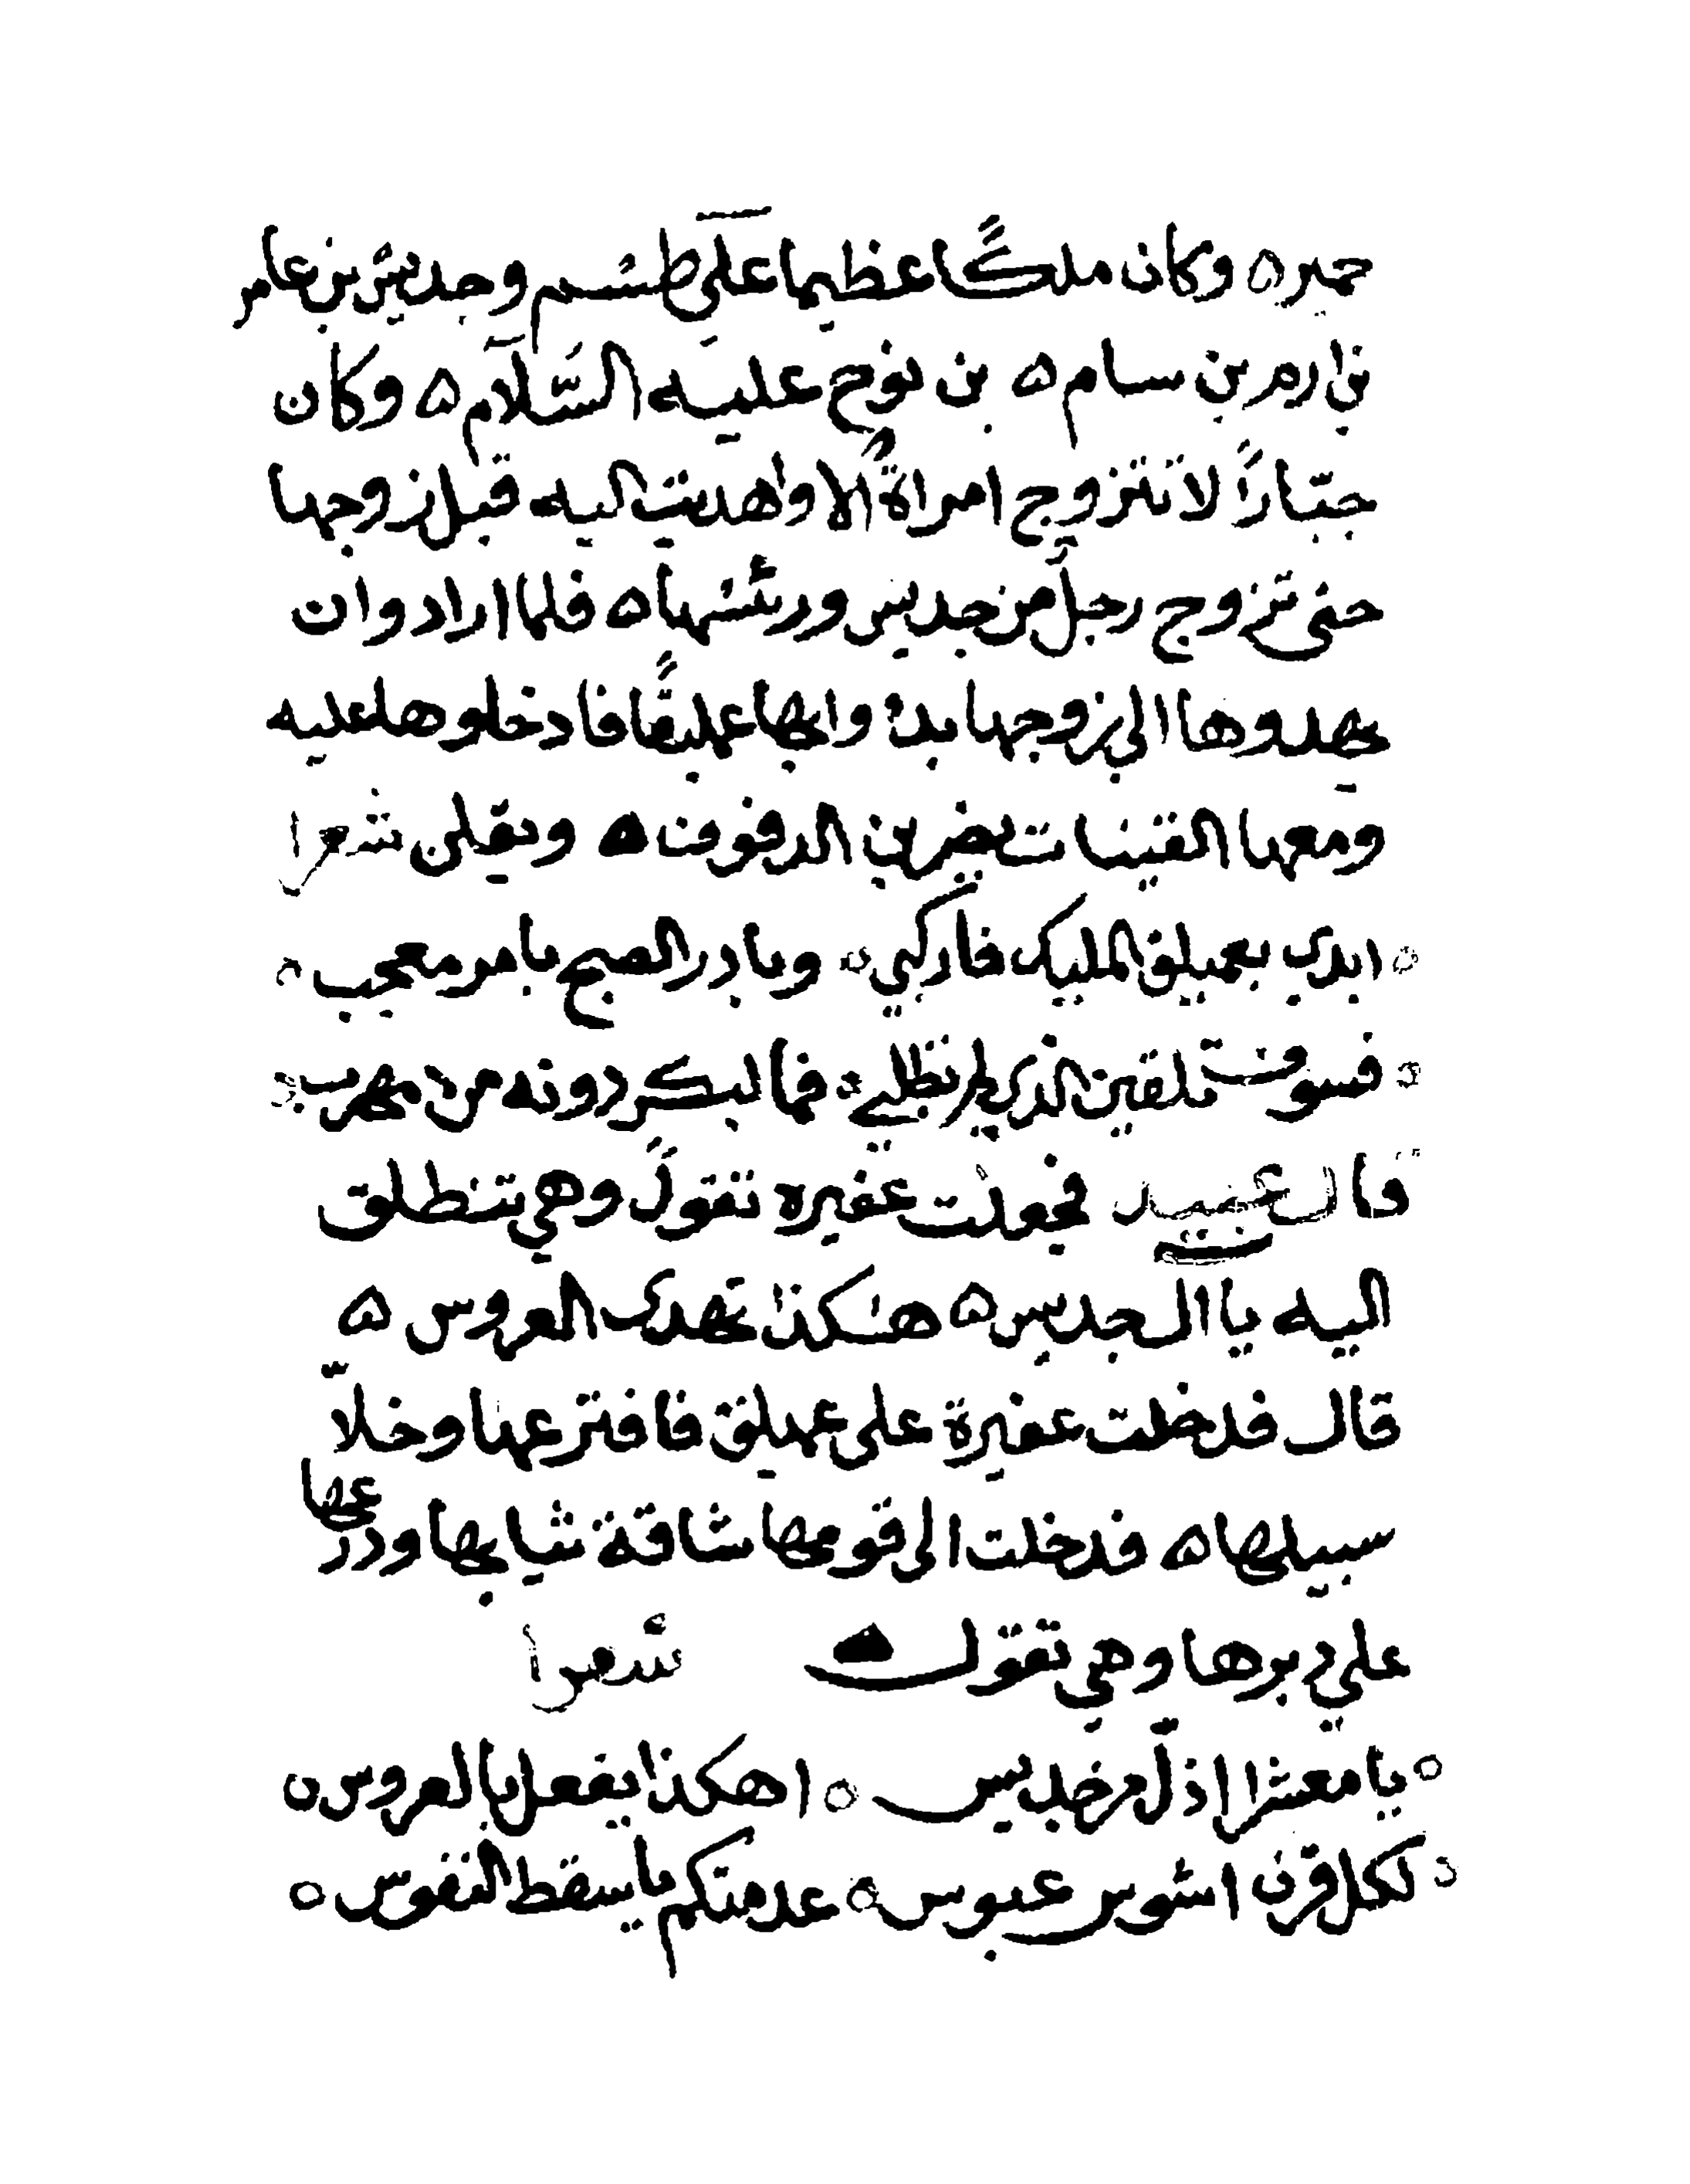 حمير ه وكان ملكًا عظيما على طسم وجديس بن عامر
بن ارم بن سام ه بن نوح عليه السَّلام ه وكان
جبّارًا لا تتزوج امراةً الا واهديت اليه قبل زوجها
حتى تزوج رجل من جديس ورئسها ه فلما ارادوا ان
يهدوها الى زوجها بدؤا بها عمليقًا فادخلوها عليه
ومعها القينات يضربن الدفوف ه ويقلن شعرا
ابدي بعميلق المليك فاركبي ه وبادر الصبح بامر معجب ه
فسوف تلقين الذي لم تطلبي ه فما لبكر دونه من مهرب ه
قال عبيد فجعلت عفيره تقول وهي تنطلق
اليه يا ال جديس ه هكذا تهدى العروس ه
قال فدخلت عفيرة على عميلق فافترعها وخلّا
سبيلها ه فدخلت الى قومها شاقة ثيابها ودرعها
على دبرها وهي تقول ه شعرا
ه يا معشرا اذلّ من جديس ه اهكذا يفعل بالعروس ه
ه لكل قرن اشوس عبوس ه عدمتكم يا سقط النفوس ه